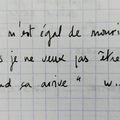 m'est égal de mouri
s je ne veux pas être
nd ça arrive " w...